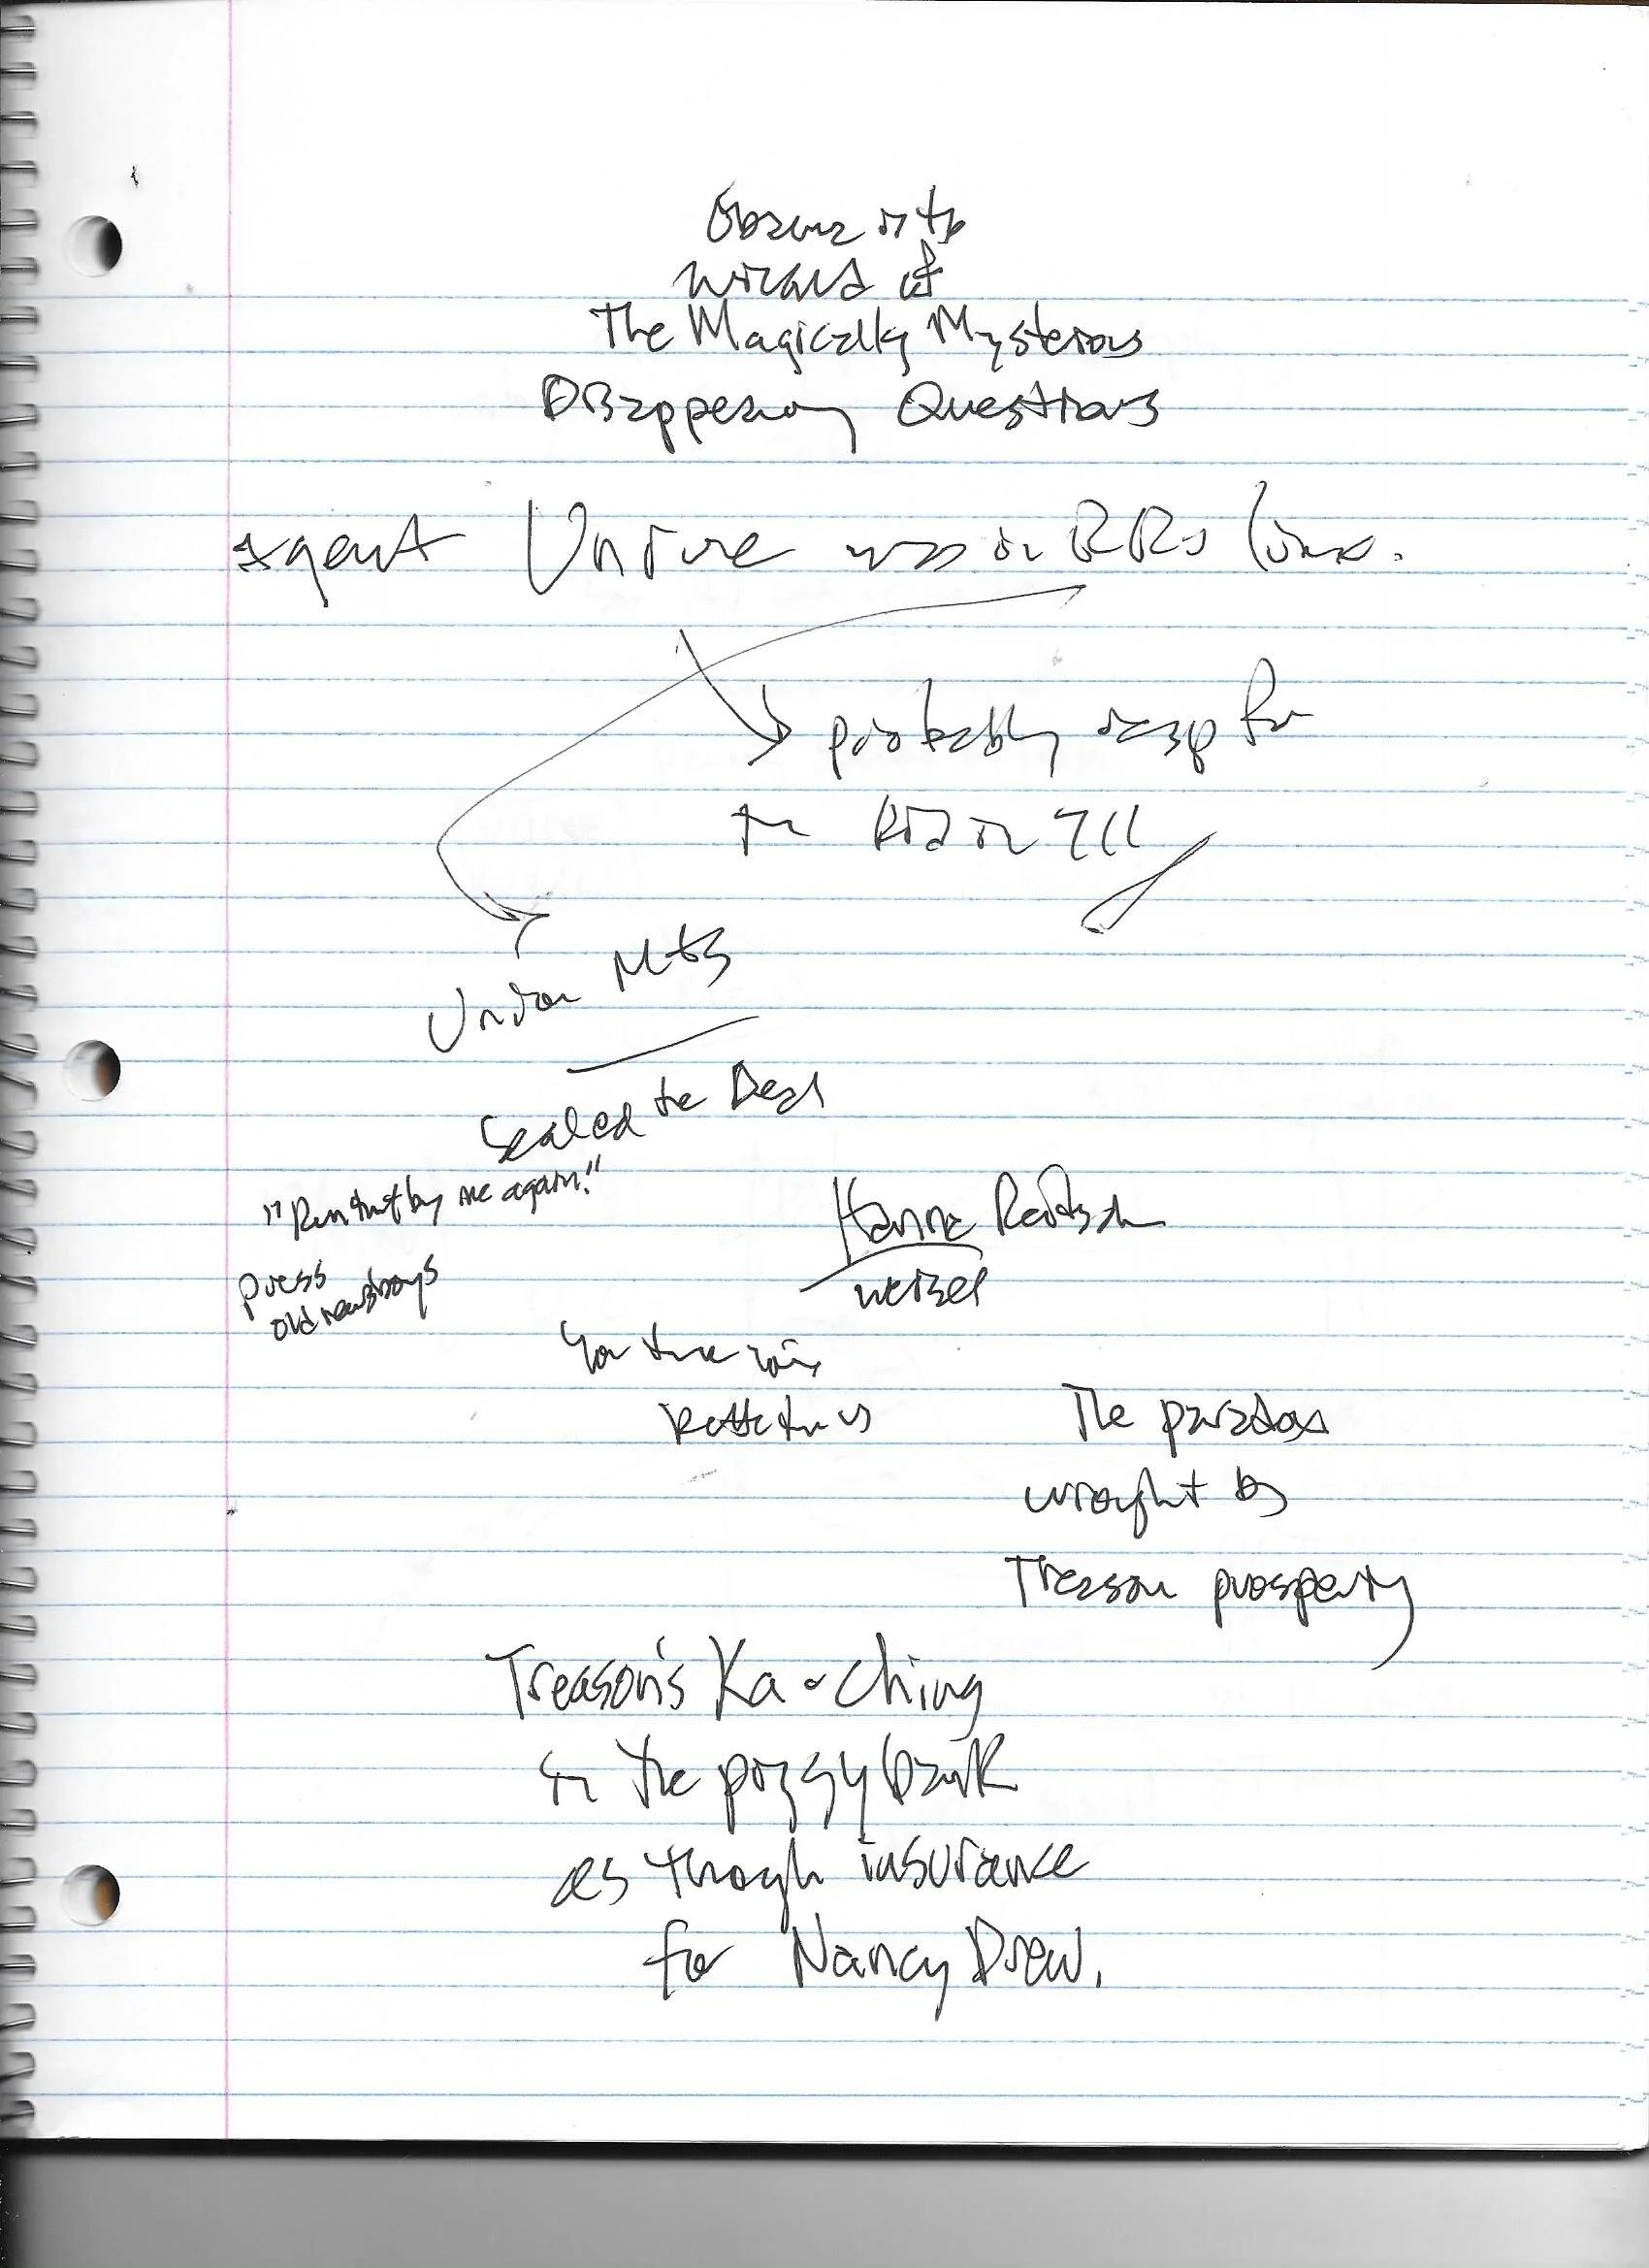 wizard of
The Magically Mysterious
Disappearing Questions
Agent was in RRs
probably resp for
the
Under Mts
Sealed the Deal
"Run that by me again!"
Press
old newsboys
Hanna Reitsch
weisel
The paradox
wrought by
Treason prosperity
Treason's Ka-ching
in the piggy bank
as though insurance
for Nancy Drew.